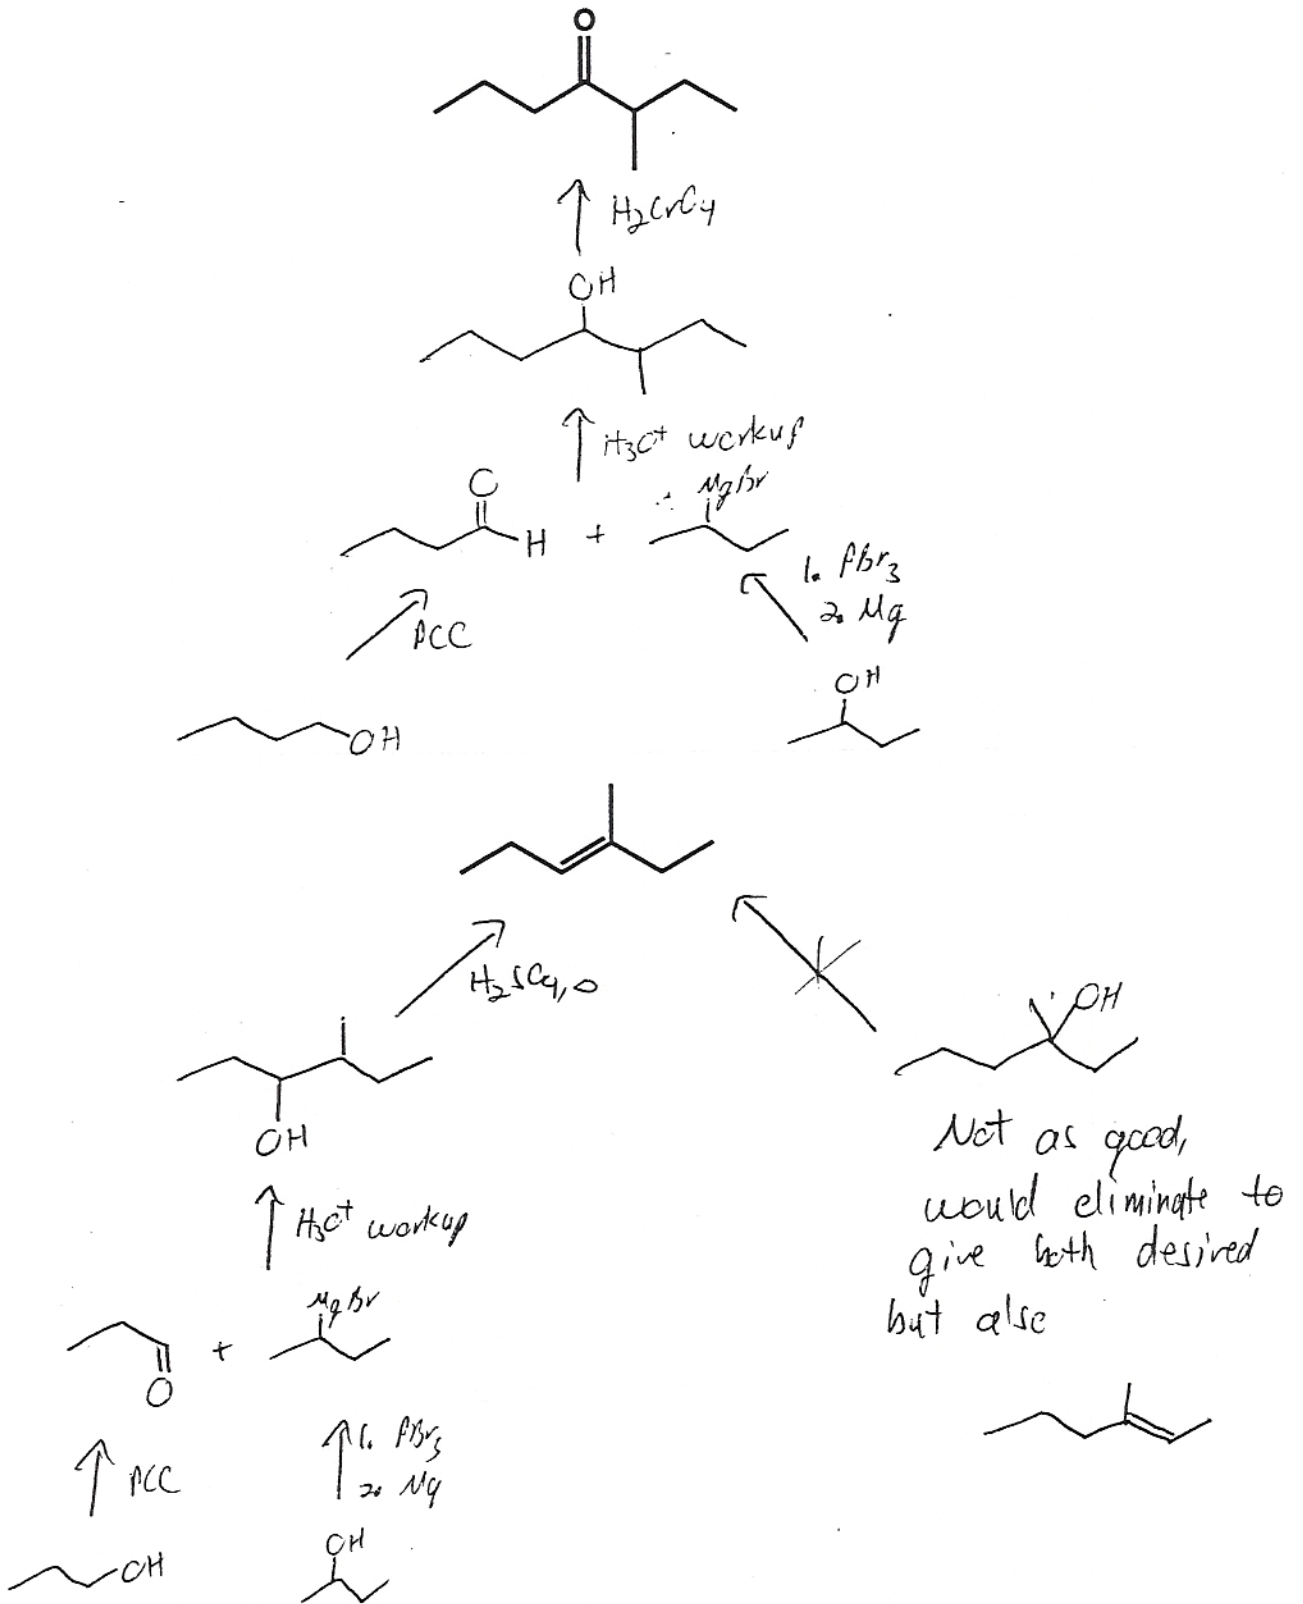 O
H2CrO4
OH
H3O+ workup
O
H
+
MgBr
1. PBr3
2. Mg
PCC
OH
OH
H2SO4, Δ
OH
OH
Not as good,
would eliminate to
give both desired
but also
H3O+ workup
MgBr
+
O
1. PBr3
2. Mg
PCC
OH
OH